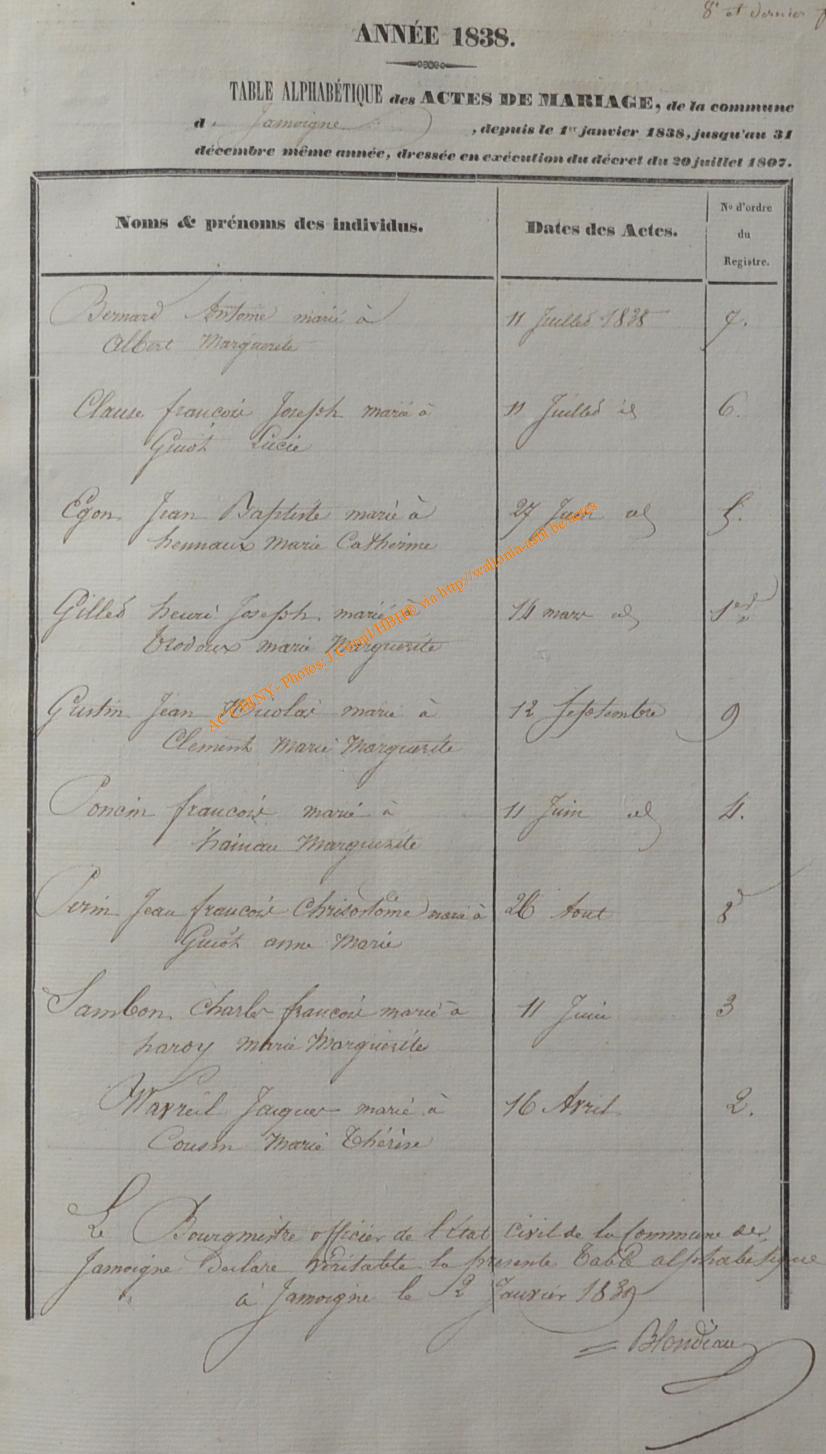 8e et dernier
ANNÉE 1838.
TABLE ALPHABÉTIQUE des ACTES DE MARIAGE, de la commune
d Jamoigne , depuis le 1er janvier 1838, jusqu'au 31
décembre même année, dressée en exécution du décret du 20 juillet 1807.
Noms & prénoms des individus. Dates des Actes. No d'ordre du Registre.
Bernard Antoine marié à 11 Juillet 1838 7.
Albert Marguerite
Clause françois Joseph marié à 11 Juillet id 6.
Guiot Lucie
Egon Jean Baptiste marié à 27 Juin id 5.
hennaux Marie Catherine
Gilles henri Joseph marié à 14 mars id 1er
trodoux marie Marguerite
Gustin Jean Nicolas marié à 12 Septembre 9
Clement Marie Marguerite
Poncin françois marié à 11 Juin id 4.
hainau Marguerite
Perin Jean françois Chrisostome marié à 26 Aout 8
Guiot anne Marie
Sambon Charles françois marié à 11 Juin 3
haroy marie Marguerite
Wavreil Jacques marié à 16 Avril 2.
Cousin Marie Thérèse
Le Bourgmestre officier de l'état civil de la Commune de
Jamoigne declare véritable la présente table alphabétique
à Jamoigne le 2 Janvier 1839
Blondiau
AC CHINY - Photos: J.Campill HBH@ via http://wallonia-asbl.be